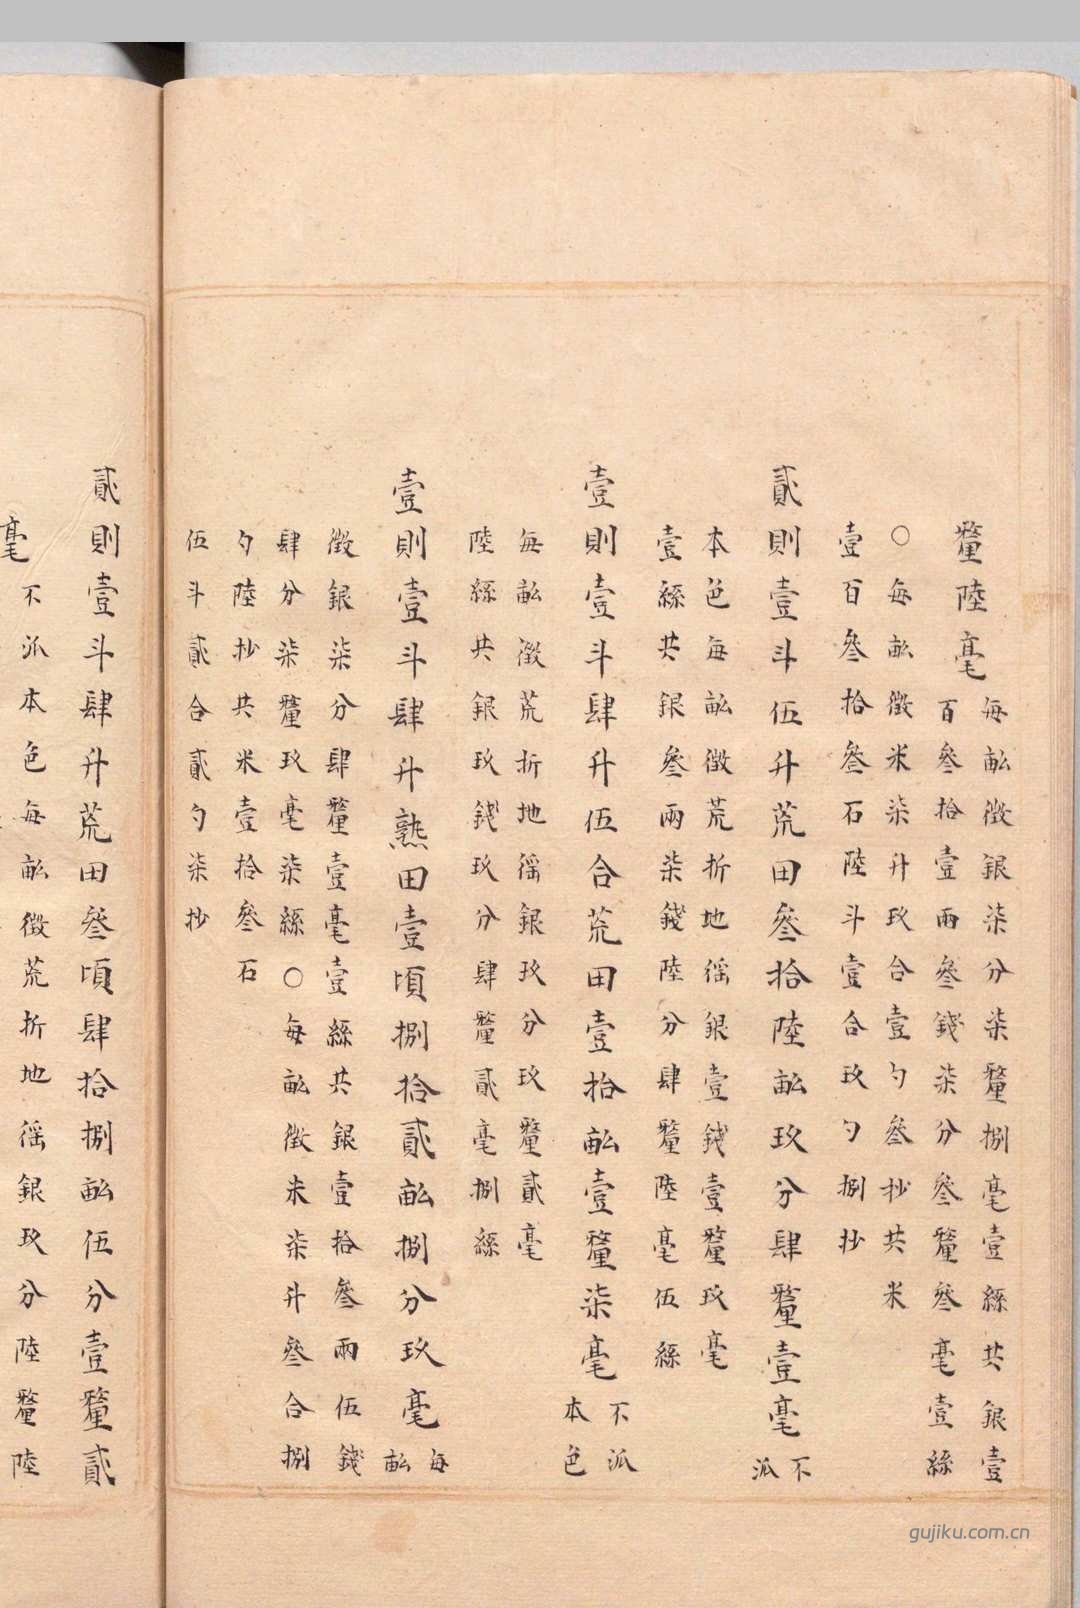 釐陸毫
每畝徵銀柒分柒釐捌毫壹絲共銀壹
百叄拾壹兩叄錢柒分叄釐叄毫壹絲
○每畝徵米柒升玖合壹勺叄抄共米
壹百叄拾叄石陸斗壹合玖勺捌抄
貳則壹斗伍升荒田叄拾陸畝玖分肆釐壹毫
不
派
本色每畝徵荒折地徭銀壹錢壹釐玖毫
壹絲共銀叄兩柒錢陸分肆釐陸毫伍絲
壹則壹斗肆升伍合荒田壹拾畝壹釐柒毫
不派
本色
每畝徵荒折地徭銀玖分玖釐貳毫
陸絲共銀玖錢玖分肆釐貳毫捌絲
壹則壹斗肆升熟田壹頃捌拾貳畝捌分玖毫
每
畝
徵銀柒分肆釐壹毫壹絲共銀壹拾叄兩伍錢
肆分柒釐玖毫柒絲○每畝徵米柒升叄合捌
勺陸抄共米壹拾叄石
伍斗貳合貳勺柒抄
貳則壹斗肆升荒田叄頃肆拾捌畝伍分壹釐貳
毫
不派本色每畝徵荒折地徭銀玖分陸釐陸
gujiku.com.cn